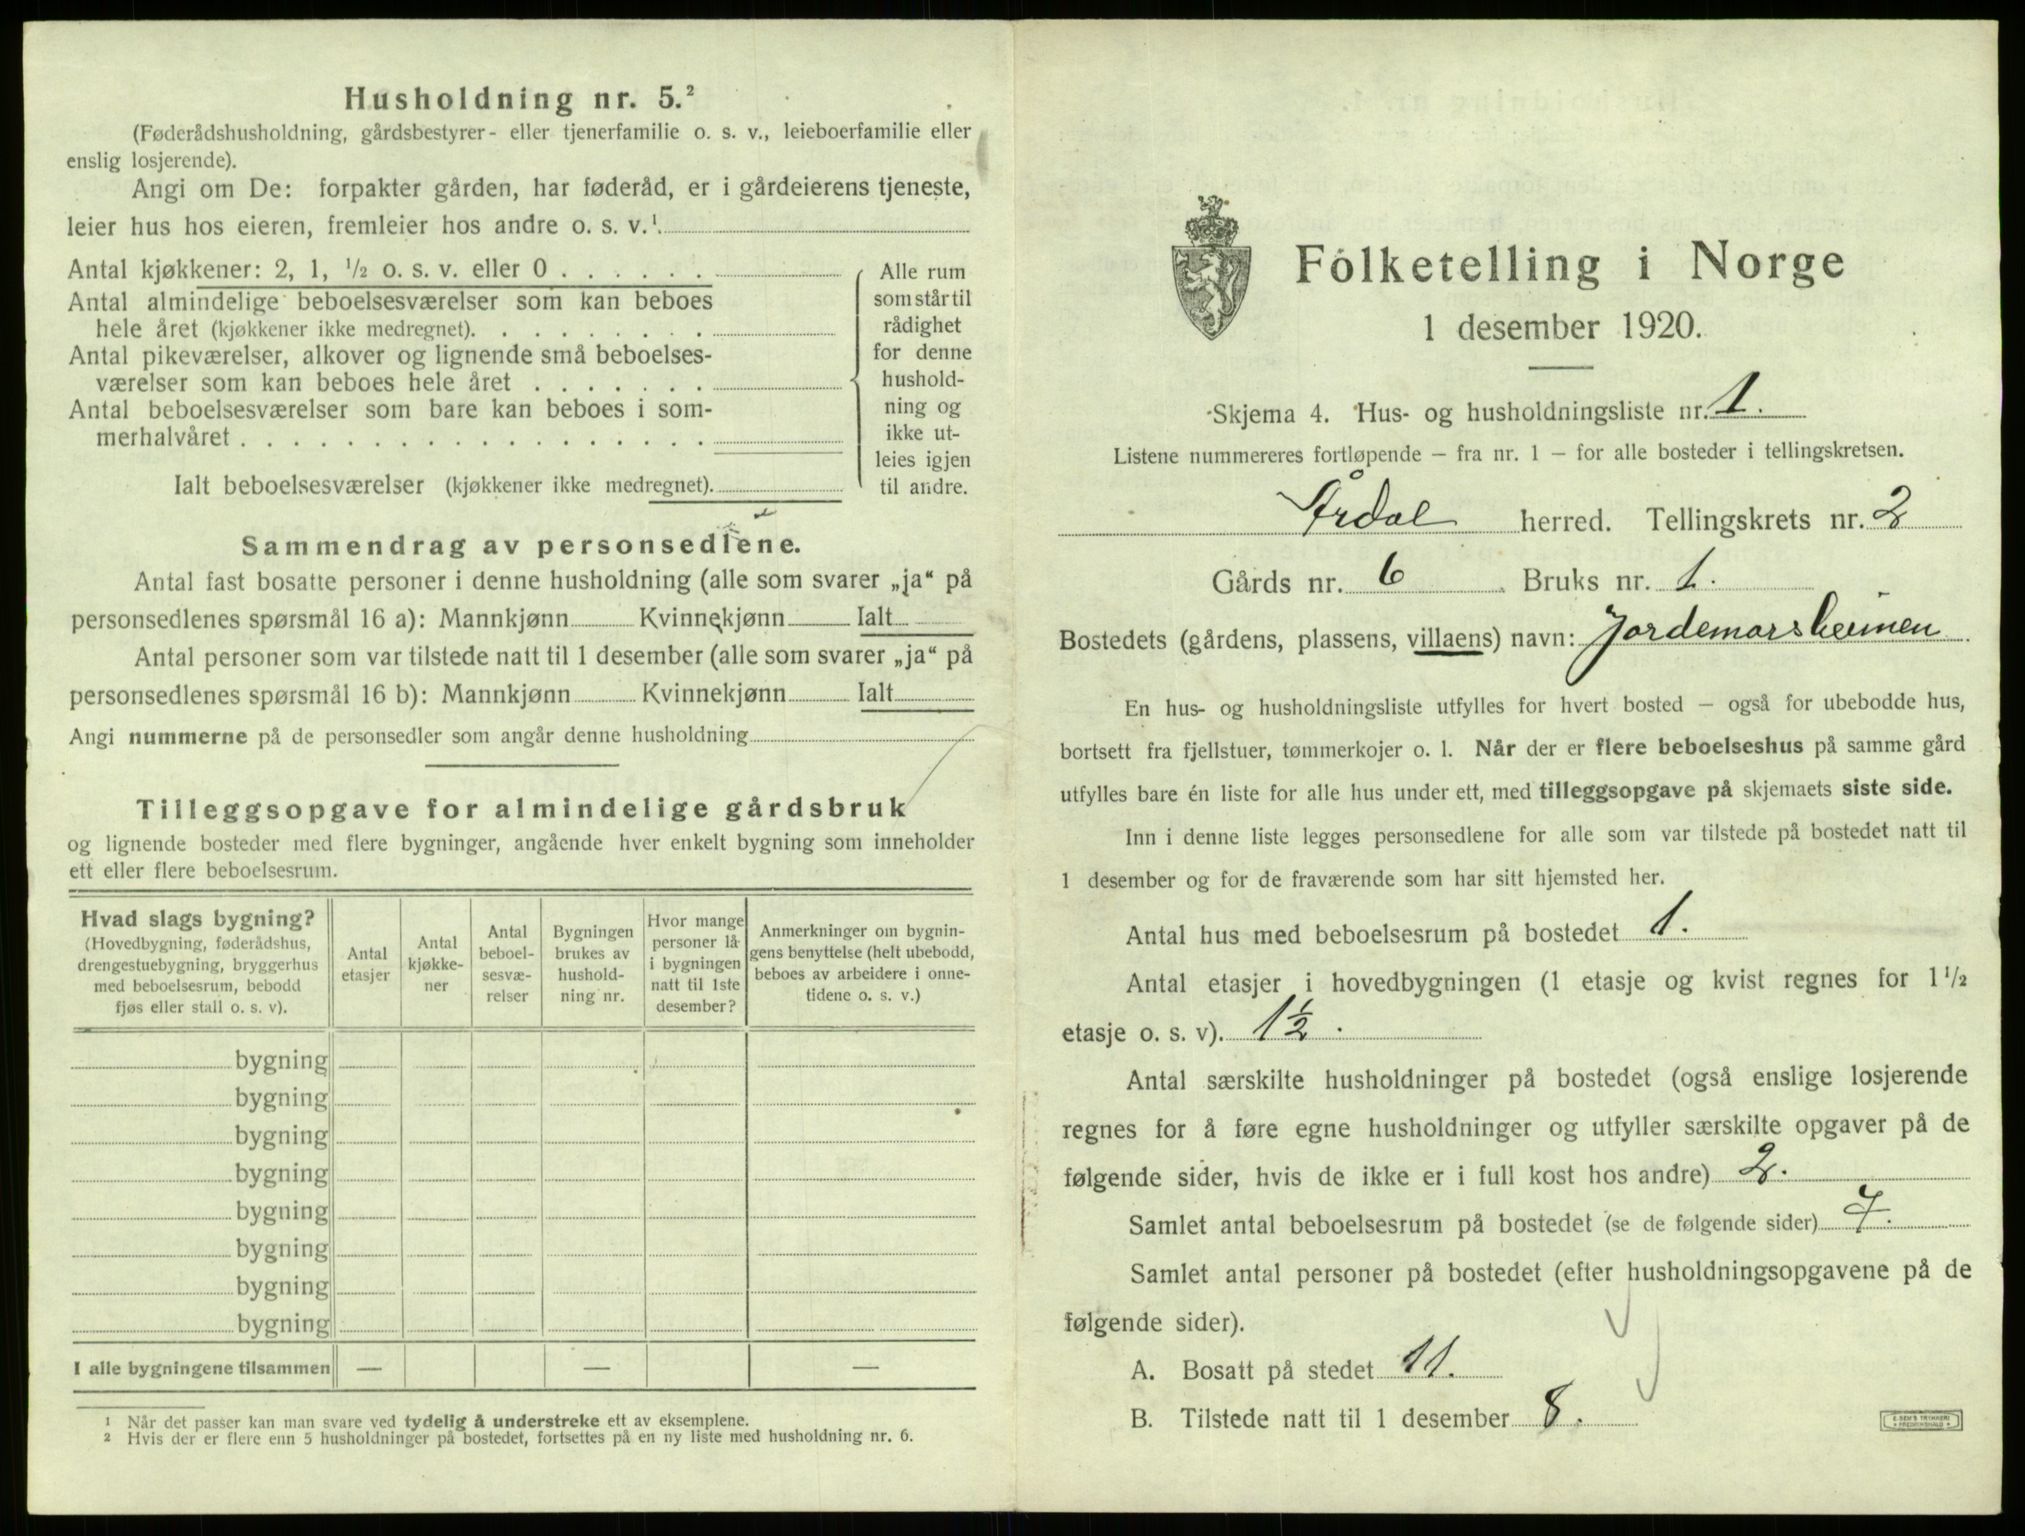 Husholdning nr. 5.²
(Føderådshusholdning, gårdsbestyrer- eller tjenerfamilie o. s. v., leieboerfamilie eller
enslig losjerende).
Angi om De: forpakter gården, har føderåd, er i gårdeierens tjeneste,
leier hus hos eieren, fremleier hos andre o. s. v.¹
Antal kjøkkener: 2, 1, ½ o. s. v. eller 0 . . . . . .
Antal almindelige beboelsesværelser som kan beboes
hele året (kjøkkener ikke medregnet). . . . . . . . .
Antal pikeværelser, alkover og lignende små beboelses-
værelser som kan beboes hele året . . . . . . .
Antal beboelsesværelser som bare kan beboes i som-
merhalvåret . . . . . . . . . . . . . . . . . .
Ialt beboelsesværelser (kjøkkener ikke medregnet).
Alle rum
som står til
rådighet
for denne
hushold-
ning og
ikke ut-
leies igjen
til andre.
Sammendrag av personsedlene.
Antal fast bosatte personer i denne husholdning (alle som svarer „ja“ på
personsedlenes spørsmål 16 a): Mannkjønn Kvinnekjønn Ialt
Antal personer som var tilstede natt til 1 desember (alle som svarer „ja“ på
personsedlenes spørsmål 16 b): Mannkjønn Kvinnekjønn Ialt
Angi nummerne på de personsedler som angår denne husholdning
Tilleggsopgave for almindelige gårdsbruk
og lignende bosteder med flere bygninger, angående hver enkelt bygning som inneholder
ett eller flere beboelsesrum.
Hvad slags bygning?
(Hovedbygning, føderådshus,
drengestuebygning, bryggerhus
med beboelsesrum, bebodd
fjøs eller stall o. s. v).
Antal
etasjer
Antal
kjøkke-
ner
Antal
beboel-
sesvæ-
relser
Bygningen
brukes av
hushold-
ning nr.
Hvor mange
personer lå
i bygningen
natt til 1ste
desember?
Anmerkninger om bygnin-
gens benyttelse (helt ubebodd,
beboes av arbeidere i onne-
tidene o. s. v.)
bygning
bygning
bygning
bygning
bygning
bygning
bygning
bygning
I alle bygningene tilsammen — — —
¹ Når det passer kan man svare ved tydelig å understreke ett av eksemplene.
² Hvis der er flere enn 5 husholdninger på bostedet, fortsettes på en ny liste med husholdning nr. 6.
Folketelling i Norge
1 desember 1920.
Skjema 4. Hus- og husholdningsliste nr. 1.
Listene nummereres fortløpende – fra nr. 1 – for alle bosteder i tellingskretsen.
Årdal herred. Tellingskrets nr. 2
Gårds nr. 6 . Bruks nr. 1.
Bostedets (gårdens, plassens, villaens) navn: Jordemorsheimen
En hus- og husholdningsliste utfylles for hvert bosted – også for ubebodde hus,
bortsett fra fjellstuer, tømmerkojer o. l. Når der er flere beboelseshus på samme gård
utfylles bare én liste for alle hus under ett, med tilleggsopgave på skjemaets siste side.
Inn i denne liste legges personsedlene for alle som var tilstede på bostedet natt til
1 desember og for de fraværende som har sitt hjemsted her.
Antal hus med beboelsesrum på bostedet 1.
Antal etasjer i hovedbygningen (1 etasje og kvist regnes for 1 ½
etasje o. s. v). 1½.
Antal særskilte husholdninger på bostedet (også enslige losjerende
regnes for å føre egne husholdninger og utfyller særskilte opgaver på de
følgende sider, hvis de ikke er i full kost hos andre) 2.
Samlet antal beboelsesrum på bostedet (se de følgende sider) 7.
Samlet antal personer på bostedet (efter husholdningsopgavene på de
følgende sider).
A. Bosatt på stedet 11.
B. Tilstede natt til 1 desember 8.